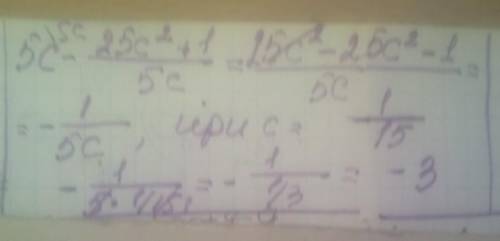 5c^{\5c} - \frac{25c² + 1}{5c} = \frac{25c² - 25c² - 1}{5c} =
= - \frac{1}{5c}, при c = \frac{1}{15}
- \frac{1}{5 · 1/15} = - \frac{1}{1/3} = - 3